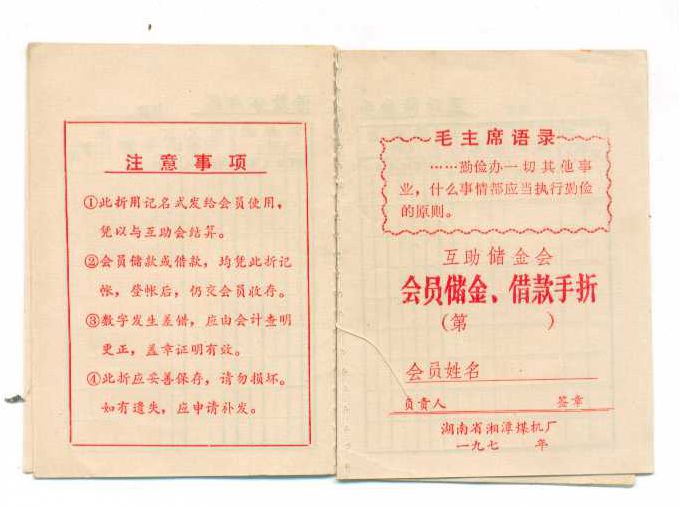 注意事项
①此折用记名式发给会员使用，
凭以与互助会结算。
②会员储款或借款，均凭此折记
帐，登帐后，仍交会员收存。
③数字发生差错，应由会计查明
更正，盖章证明有效。
④此折应妥善保存，请勿损坏。
如有遗失，应申请补发。
毛主席语录
……勤俭办一切其他事
业，什么事情都应当执行勤俭
的原则。
互助储金会
会员储金、借款手折
(第　　　)
会员姓名
负责人　　　签章
湖南省湘潭煤机厂
一九七　　年